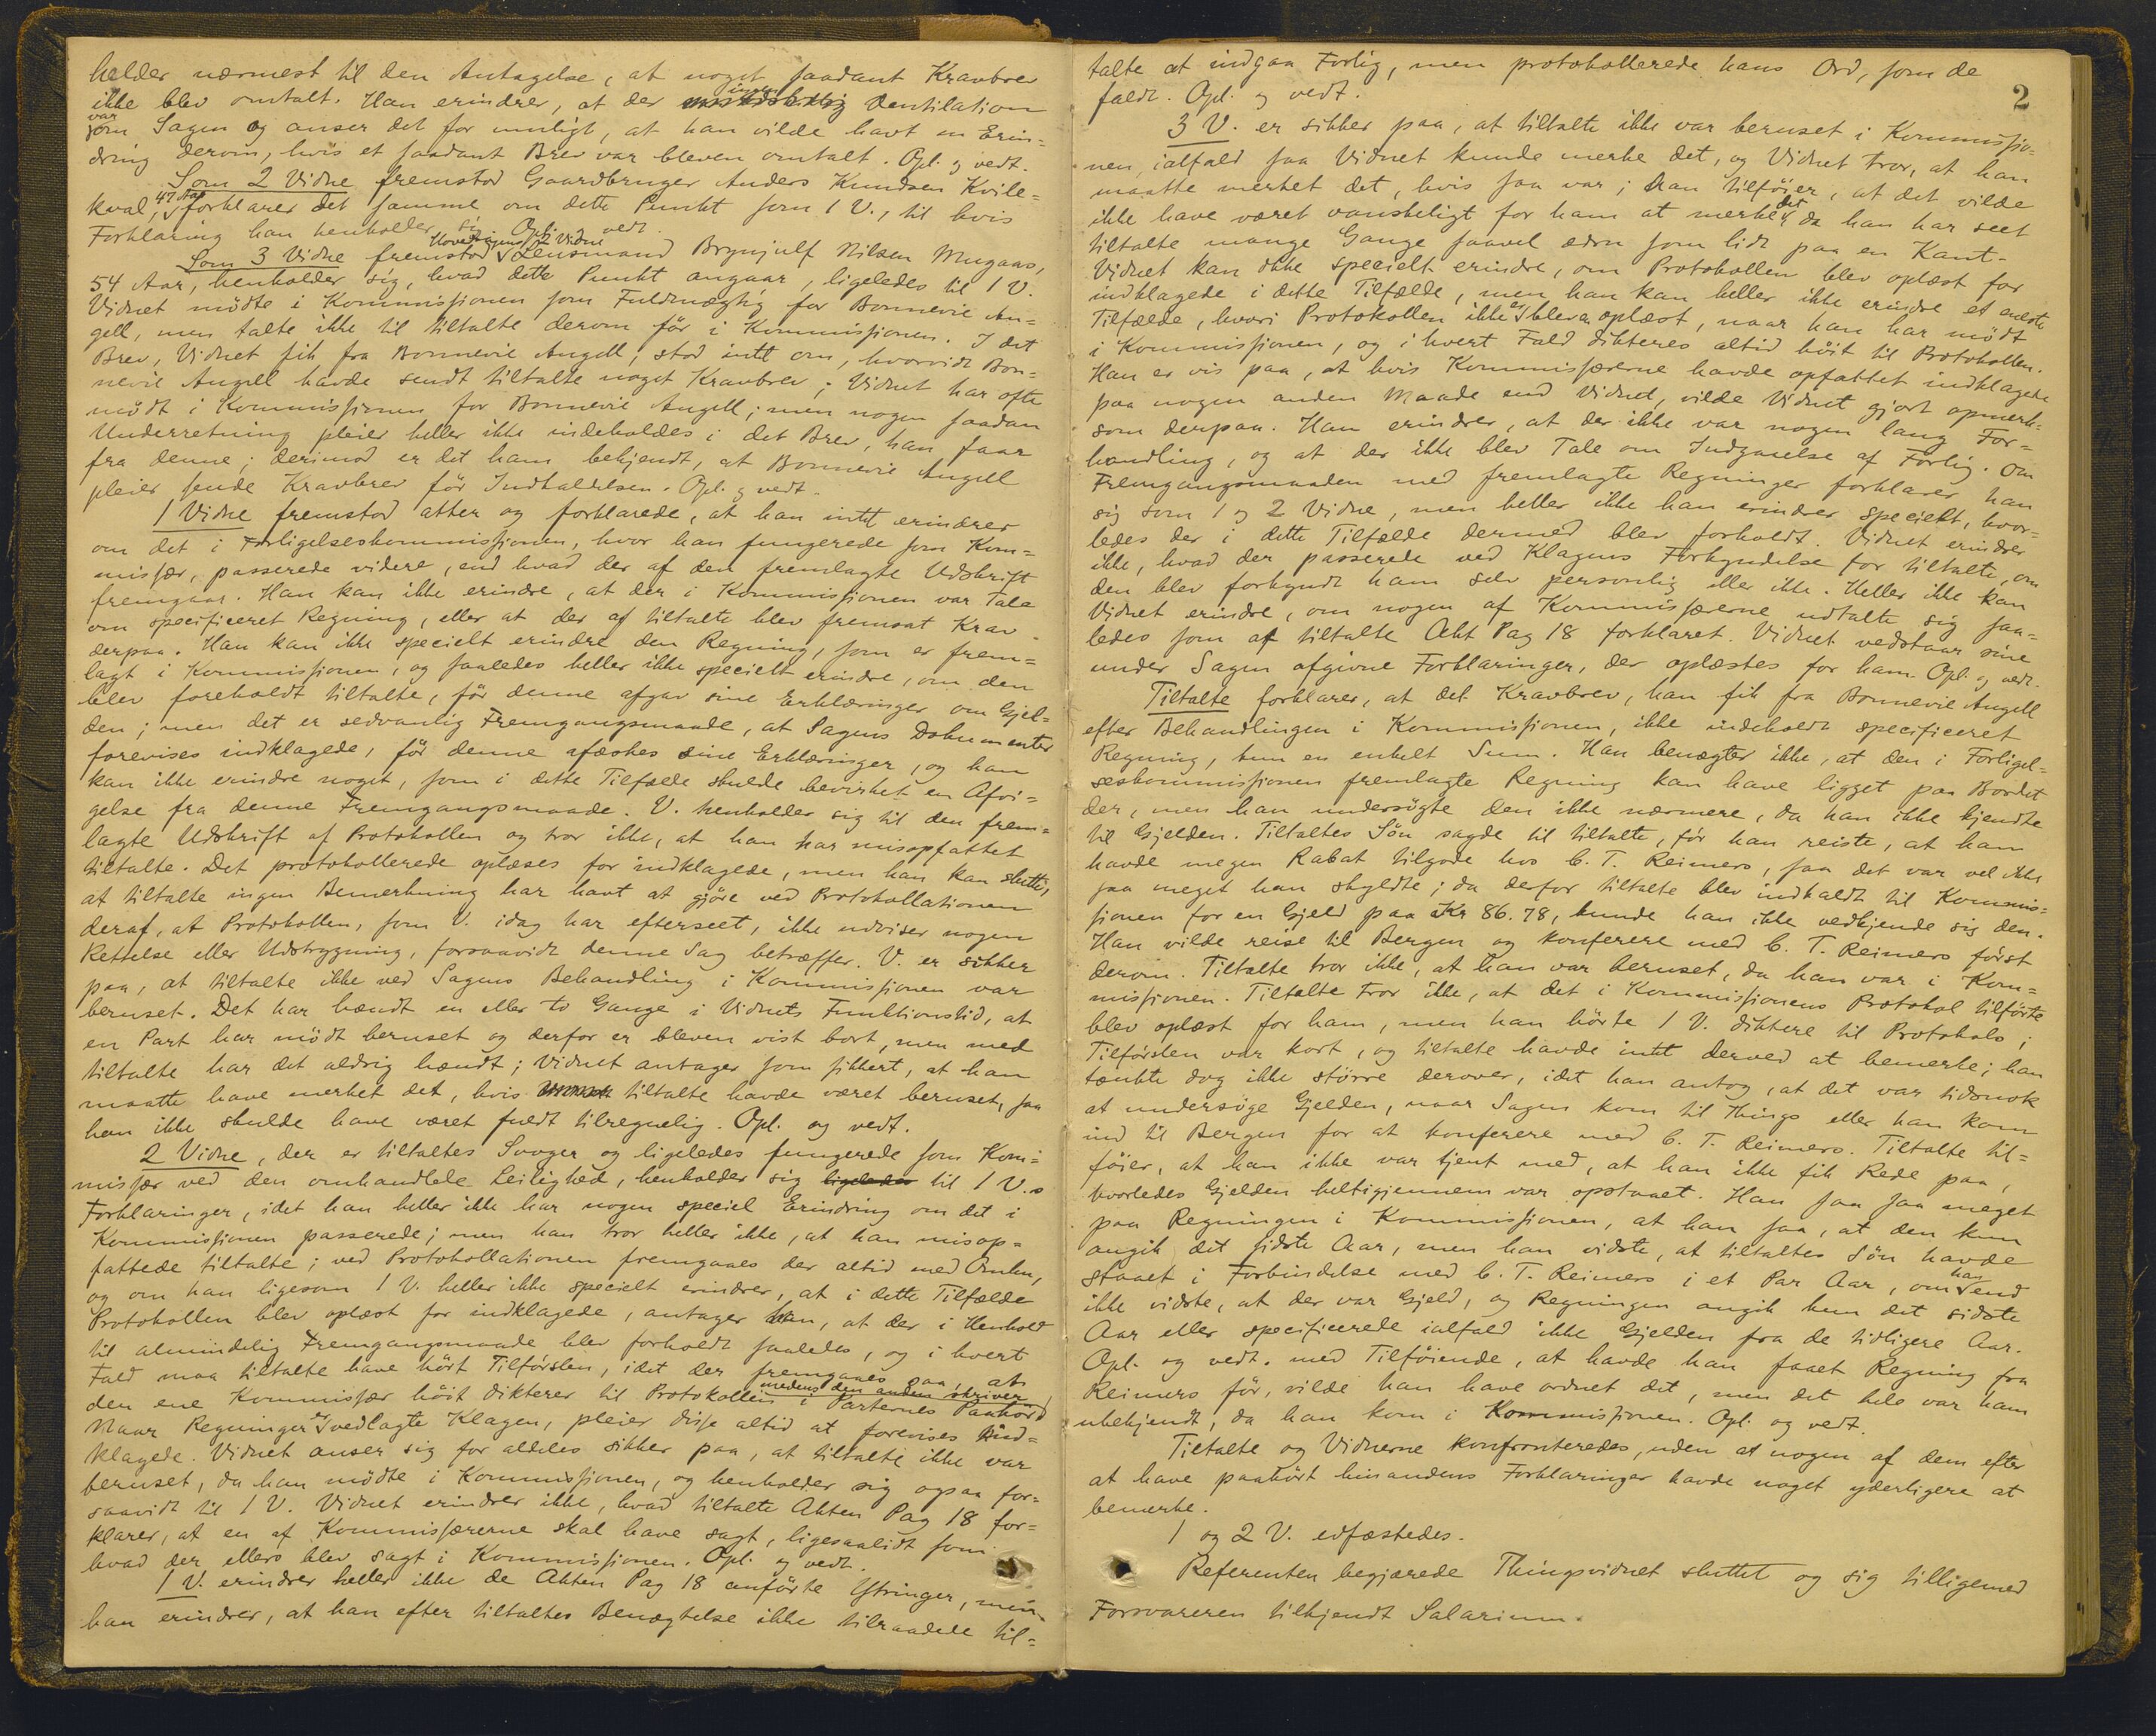 helder nærmest til den Antagelse, at noget saadant Kravbrev
ikke blev omtalt. Han erindrer, at der Ventilation
var
om Sagen og anser det for muligt, at han vilde havt en Erin=
dring derom, hvis et saadant Brev var bleven omtalt. Opl. og vedt.
Som 2 Vidne fremstod Gaardbruger Anders Knudsen Kvile=
kval, 47 Aar, forklarer det samme om dette Punkt som 1 V., til hvis
Forklaring han henholder sig. Opl. og vedt.
Som 3 Vidne fremstod Hovedsagens 2 Vidne Lensmand Brynjulf Nilsen Mugaas,
54 Aar, henholder sig, hvad dette Punkt angaar, ligeledes til 1 V.
Vidnet mødte i Kommissionen som Fuldmægtig for Bonnevie An=
gell, men talte ikke til tiltalte derom før i Kommissionen. I det
Brev, Vidnet fik fra Bonnevie Angell, stod intet om, hvorvidt Bon=
nevie Angell havde sendt tiltalte noget Kravbrev; Vidnet har ofte
mødt i Kommissionen for Bonnevie Angell; men nogen saadan
Underretning pleier heller ikke indeholdes i det Brev, han faar
fra denne; derimod er det ham bekjendt, at Bonnevie Angell
pleier sende Kravbrev før Indkaldelsen. Opl. og vedt.
1 Vidne fremstod atter og forklarede, at han intet erindrer
om det i Forligelseskommissionen, hvor han fungerede som Kom=
missær, passerede videre, end hvad der af den fremlagte Udskrift
fremgaar. Han kan ikke erindre, at der i Kommissionen var Tale
om specificeret Regning, eller at der af tiltalte blev fremsat Krav
derpaa. Han kan ikke specielt erindre den Regning, som er frem=
lagt i Kommissionen, og saaledes heller ikke specielt erindre, om den
blev foreholdt tiltalte, før denne afgav sine Erklæringer om Gjel=
den; men det er sedvanlig Fremgangsmaade, at Sagens Dokumenter
forevises indklagede, før denne afæskes sine Erklæringer, og han
kan ikke erindre noget, som i dette Tilfælde skulde bevirket en Afvi=
gelse fra denne Fremgangsmaade. V. henholder sig til den frem=
lagte Udskrift af Protokollen og tror ikke, at han har misopfattet
tiltalte. Det protokollerede oplæses for indklagede, men han kan slutte,
at tiltalte ingen Bemerkning har havt at gjøre ved Protokollationen
deraf, at Protokollen, som V. idag har efterseet, ikke udviser nogen
Rettelse eller Udstrygning, forsaavidt denne Sag betræffer. V. er sikker
paa, at tiltalte ikke ved Sagens Behandling i Kommissionen var
beruset. Det har hændt en eller to Gange i Vidnets Funktionstid, at
en Part har mødt beruset og derfor er bleven vist bort, men med
tiltalte har det aldrig hændt; Vidnet antager som sikkert, at han
maatte have merket det, hvis tiltalte havde været beruset, saa
han ikke skulde have været fuldt tilregnelig. Opl. og vedt.
2 Vidne, der er tiltaltes Svoger og ligeledes fungerede som Kom=
missær ved den omhandlede Leilighed, henholder sig ligeledes til 1 V.s
Forklaringer, idet han heller ikke har nogen speciel Erindring om det i
Kommissionen passerede; men han tror heller ikke, at han misop=
fattede tiltalte; ved Protokollationen fremgaaes der altid med Omhu,
og om han ligesom 1 V. heller ikke specielt erindrer, at i dette Tilfælde
Protokollen blev oplæst for indklagede, antager han, at der i Henhold
til almindelig Fremgangsmaade blev forholdt saaledes, og i hvert
Fald maa tiltalte have hørt Tilførslen, idet der fremgaaes saa, at
den ene Kommissær høit dikterer til Protokollen medens den anden skriver i Parternes Paahør
Naar Regninger er vedlagte Klagen, pleier disse altid at forevises ind=
klagede. Vidnet anser sig for aldeles sikker paa, at tiltalte ikke var
beruset, da han mødte i Kommissionen, og henholder sig ogsaa for=
saavidt til 1 V. Vidnet erindrer ikke, hvad tiltalte Akten Pag 18 for=
klarer, at en af Kommissærerne skal have sagt, ligesaalidt som
hvad der ellers blev sagt i Kommissionen. Opl. og vedt.
1 V. erindrer heller ikke de Akten Pag 18 anførte Ytringer, men
han erindrer, at han efter tiltaltes Benægtelse ikke tilraadede til=
2
talte at indgaa Forlig, men protokollerede hans Ord, som de
faldt. Opl. og vedt.
3 V. er sikker paa, at tiltalte ikke var beruset i Kommissio=
nen, ialfald saa Vidnet kunde merke det, og Vidnet tror, at han
maatte merket det, hvis saa var; han tilføier, at det vilde
ikke have været vanskeligt for ham at merke det, da han har seet
tiltalte mange Gange saavel ædru som lidt paa en Kant.
Vidnet kan ikke specielt erindre, om Protokollen blev oplæst for
indklagede i dette Tilfælde, men han kan heller ikke erindre et eneste
Tilfælde, hvori Protokollen ikke er bleven oplæst, naar han har mødt
i Kommissionen, og i hvert Fald dikteres altid høit til Protokollen.
Han er vis paa, at hvis Kommissærerne havde opfattet indklagede
paa nogen anden Maade end Vidnet, vilde Vidnet gjort opmerk=
som derpaa. Han erindrer, at der ikke var nogen lang For=
handling, og at der ikke blev Tale om Indgaaelse af Forlig. Om
Fremgangsmaaden med fremlagte Regninger forklarer han
sig som 1 og 2 Vidne, men heller ikke han erindrer specielt, hvor=
ledes der i dette Tilfælde dermed blev forholdt. Vidnet erindrer
ikke, hvad der passerede ved Klagens Forkyndelse for tiltalte, om
den blev forkyndt ham selv personlig eller ikke. Heller ikke kan
Vidnet erindre, om nogen af Kommissærerne udtalte sig saa=
ledes som af tiltalte Akt Pag 18 forklaret. Vidnet vedstaar sine
under Sagen afgivne Forklaringer, der oplæstes for ham. Opl. og vedt.
Tiltalte forklarer, at det Kravbrev, han fik fra Bonnevie Angell
efter Behandlingen i Kommissionen, ikke indeholdt specificeret
Regning, kun en enkelt Sum. Han benægter ikke, at den i Forligel=
seskommissionen fremlagte Regning kan have ligget paa Bordet
der, men han undersøgte den ikke nærmere, da han ikke kjendte
til Gjelden. Tiltaltes Søn sagde til tiltalte, før han reiste, at han
havde megen Rabat tilgode hos C. T. Reimers, saa det var vel ikke
saa meget han skyldte; da derfor tiltalte blev indkaldt til Kommis=
sionen for en Gjeld paa Kr 86.78, kunde han ikke vedkjende sig den.
Han vilde reise til Bergen og konferere med C. T. Reimers først
derom. Tiltalte tror ikke, at han var beruset, da han var i Kom=
missionen. Tiltalte tror ikke, at det i Kommissionens Protokol tilførte
blev oplæst for ham, men han hørte 1 V. diktere til Protokols;
Tilførslen var kort, og tiltalte havde intet derved at bemerke; han
tænkte dog ikke større derover, idet han antog, at det var tidsnok
at undersøge Gjelden, naar Sagen kom til Things eller han kom
ind til Bergen for at konferere med C. T. Reimers. Tiltalte til=
føier, at han ikke var tjent med, at han ikke fik Rede paa,
hvorledes Gjelden heltigjennem var opstaaet. Han saa saa meget
paa Regningen i Kommissionen, at han saa, at den kun
angik det sidste Aar, men han vidste, at tiltaltes Søn havde
staaet i Forbindelse med C. T. Reimers i et Par Aar, om han end
ikke vidste, at der var Gjeld, og Regningen angik kun det sidste
Aar eller specificerede ialfald ikke Gjelden fra de tidligere Aar.
Opl. og vedt. med Tilføiende, at havde han faaet Regning fra
Reimers før, vilde han have ordnet det, men det hele var ham
ubekjendt, da han kom i Kommissionen. Opl. og vedt.
Tiltalte og Vidnerne konfronteredes, uden at nogen af dem efter
at have paahørt hinandens Forklaringer havde noget yderligere at
bemerke.
1 og 2 V. edfæstedes.
Referenten begjærede Thingsvidnet sluttet og sig tilligemed
Forsvareren tilkjendt Salarium.